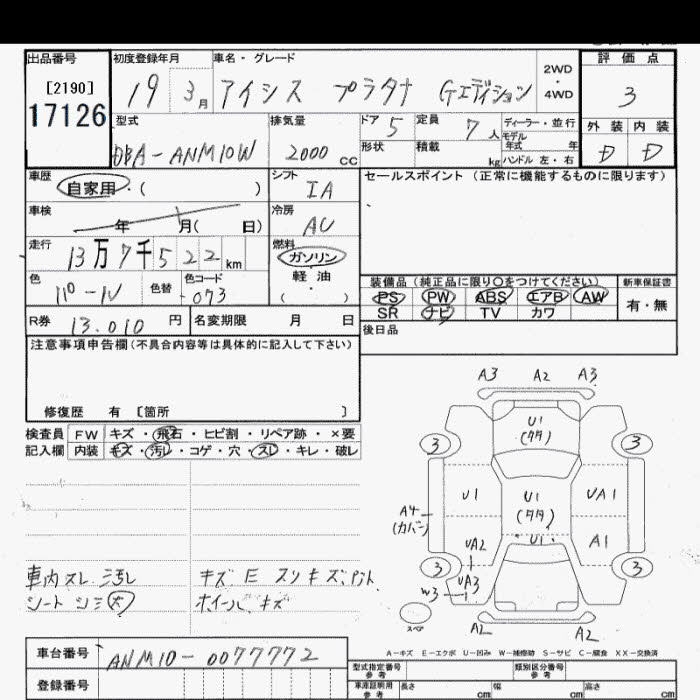 出品番号 初度登録年月 車名・グレード 2WD・4WD 評価点
[2190]
17126
19 3月 アイシス プラタナ Gエディション 3
型式 排気量 ドア 定員 ディーラー・並行 外装 内装
DBA-ANM10W 2000cc 5 7人 モデル年式 年
形状 積載 kg ハンドル 左・右 D D
車歴 自家用・( ) シフト IA セールスポイント(正常に機能するものに限ります)
車検 年 月( 日) 冷房 AC
走行 13万7千522km 燃料 ガソリン 軽・油 ( ・ )
装備品(純正品に限り○をつけてください) 新車保証書
色 パール 色替 色コード 073 PS PW ABS エアB AW 有・無
SR ナビ TV カワ
R券 13.010円 名変期限 月 日 後日品
注意事項申告欄(不具合内容等は具体的に記入して下さい)
修復歴 有 [箇所 ]
検査員 FW キズ・飛石・ヒビ割・リペア跡・×要
記入欄 内装 キズ・汚れ・コゲ・穴・スレ・キレ・破レ
A3 A2 A3
U1
(タタ)
3 3
U1 U1 UA1
(タタ)
A4
(カバー)
U1
UA2 A1
3 3
UA3
W3
スペア
A2 A2
車内スレ 汚れ キズ E スリキズ
シート シミ 大 ホイール キズ
A-キズ E-エクボ U-凹み W-補修跡 S-サビ C-腐食 XX-交換済
車台番号 ANM10-0077772
型式指定番号 参考 類別区分番号 参考
登録番号
車庫証明用 参考 長さ cm 幅 cm 高さ cm